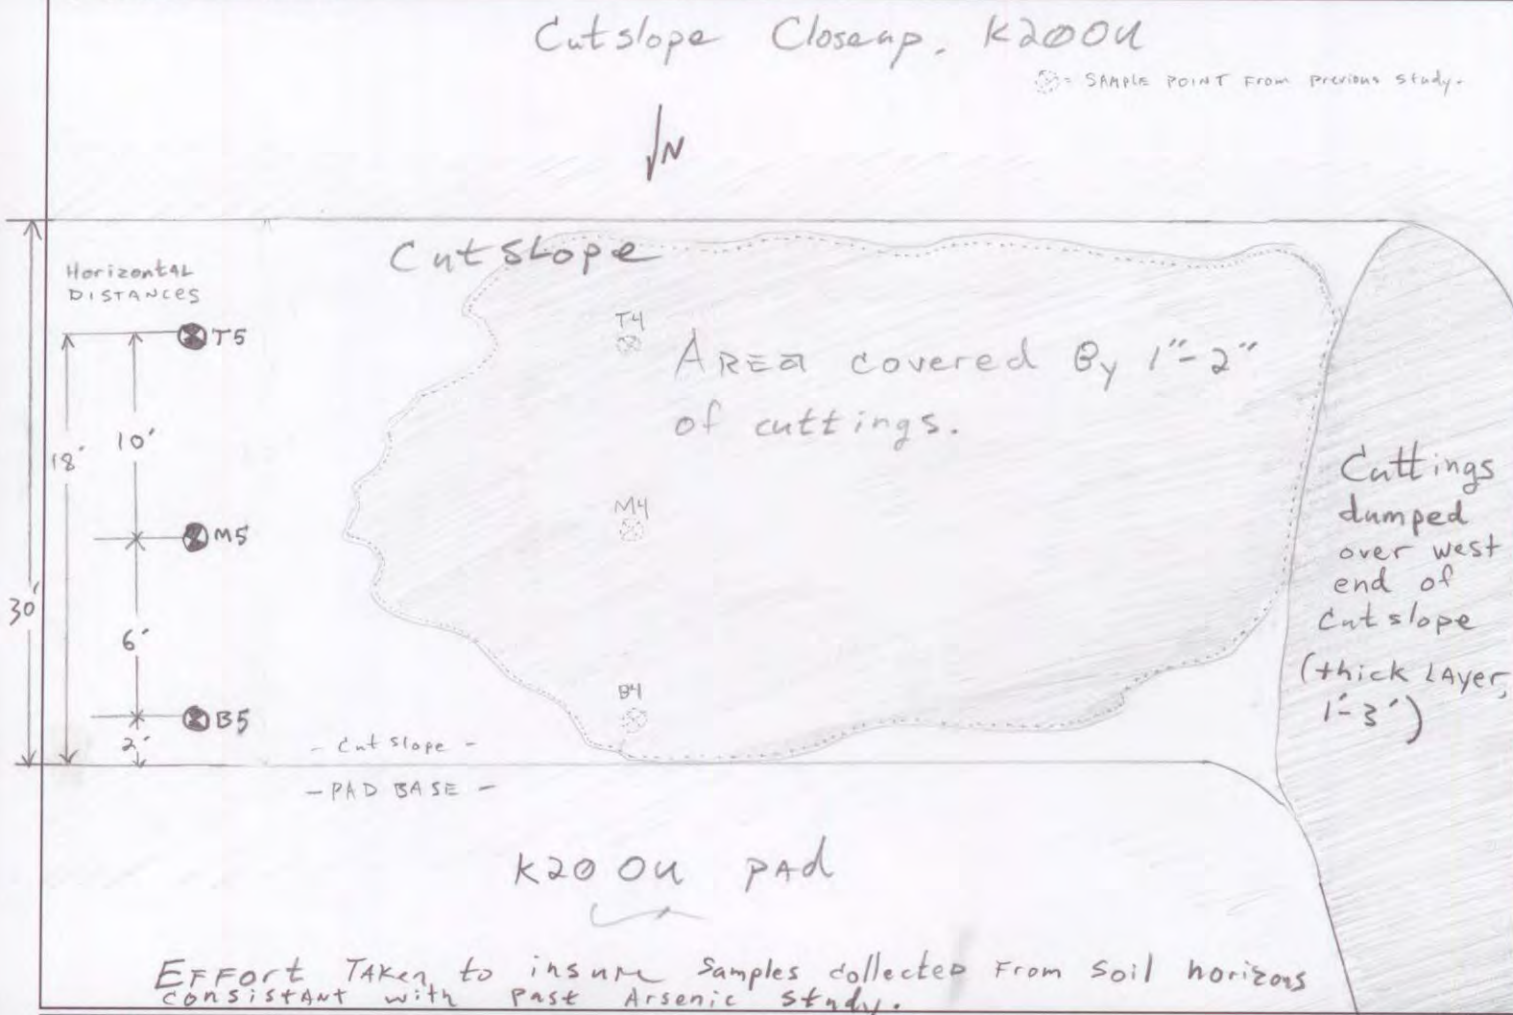 Cutslope Closeup. K20OU
= SAMPLE POINT From previous study.
N
Cut SLope
Horizontal
DISTANCES
T5
T4
AREA covered By 1"-2"
of cuttings.
10'
18'
M4
M5
Cuttings
dumped
over west
end of
Cutslope
(thick LAyer,
1'-3')
30'
6'
B4
B5
2'
- Cut Slope -
- PAD BASE -
K20OU PAd
EFFort TAKen to insure Samples collected From Soil horizons
consistAnt with Past Arsenic Study.